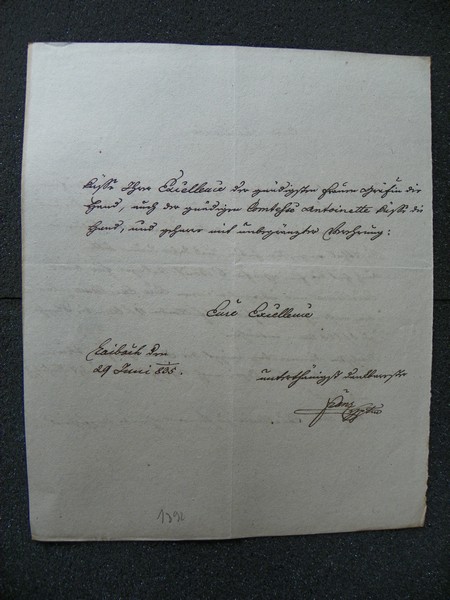 küsse Ihre Excellence der gnädigsten Frauen Gräfin die
Hand, auch der gnädigen Comtesse Antoinette küsse die
Hand, und geharre mit unbegränzter Verehrung:
Eure Excellence
Laibach den
29 Juni 835.
unterthänigst dankbarster
1392